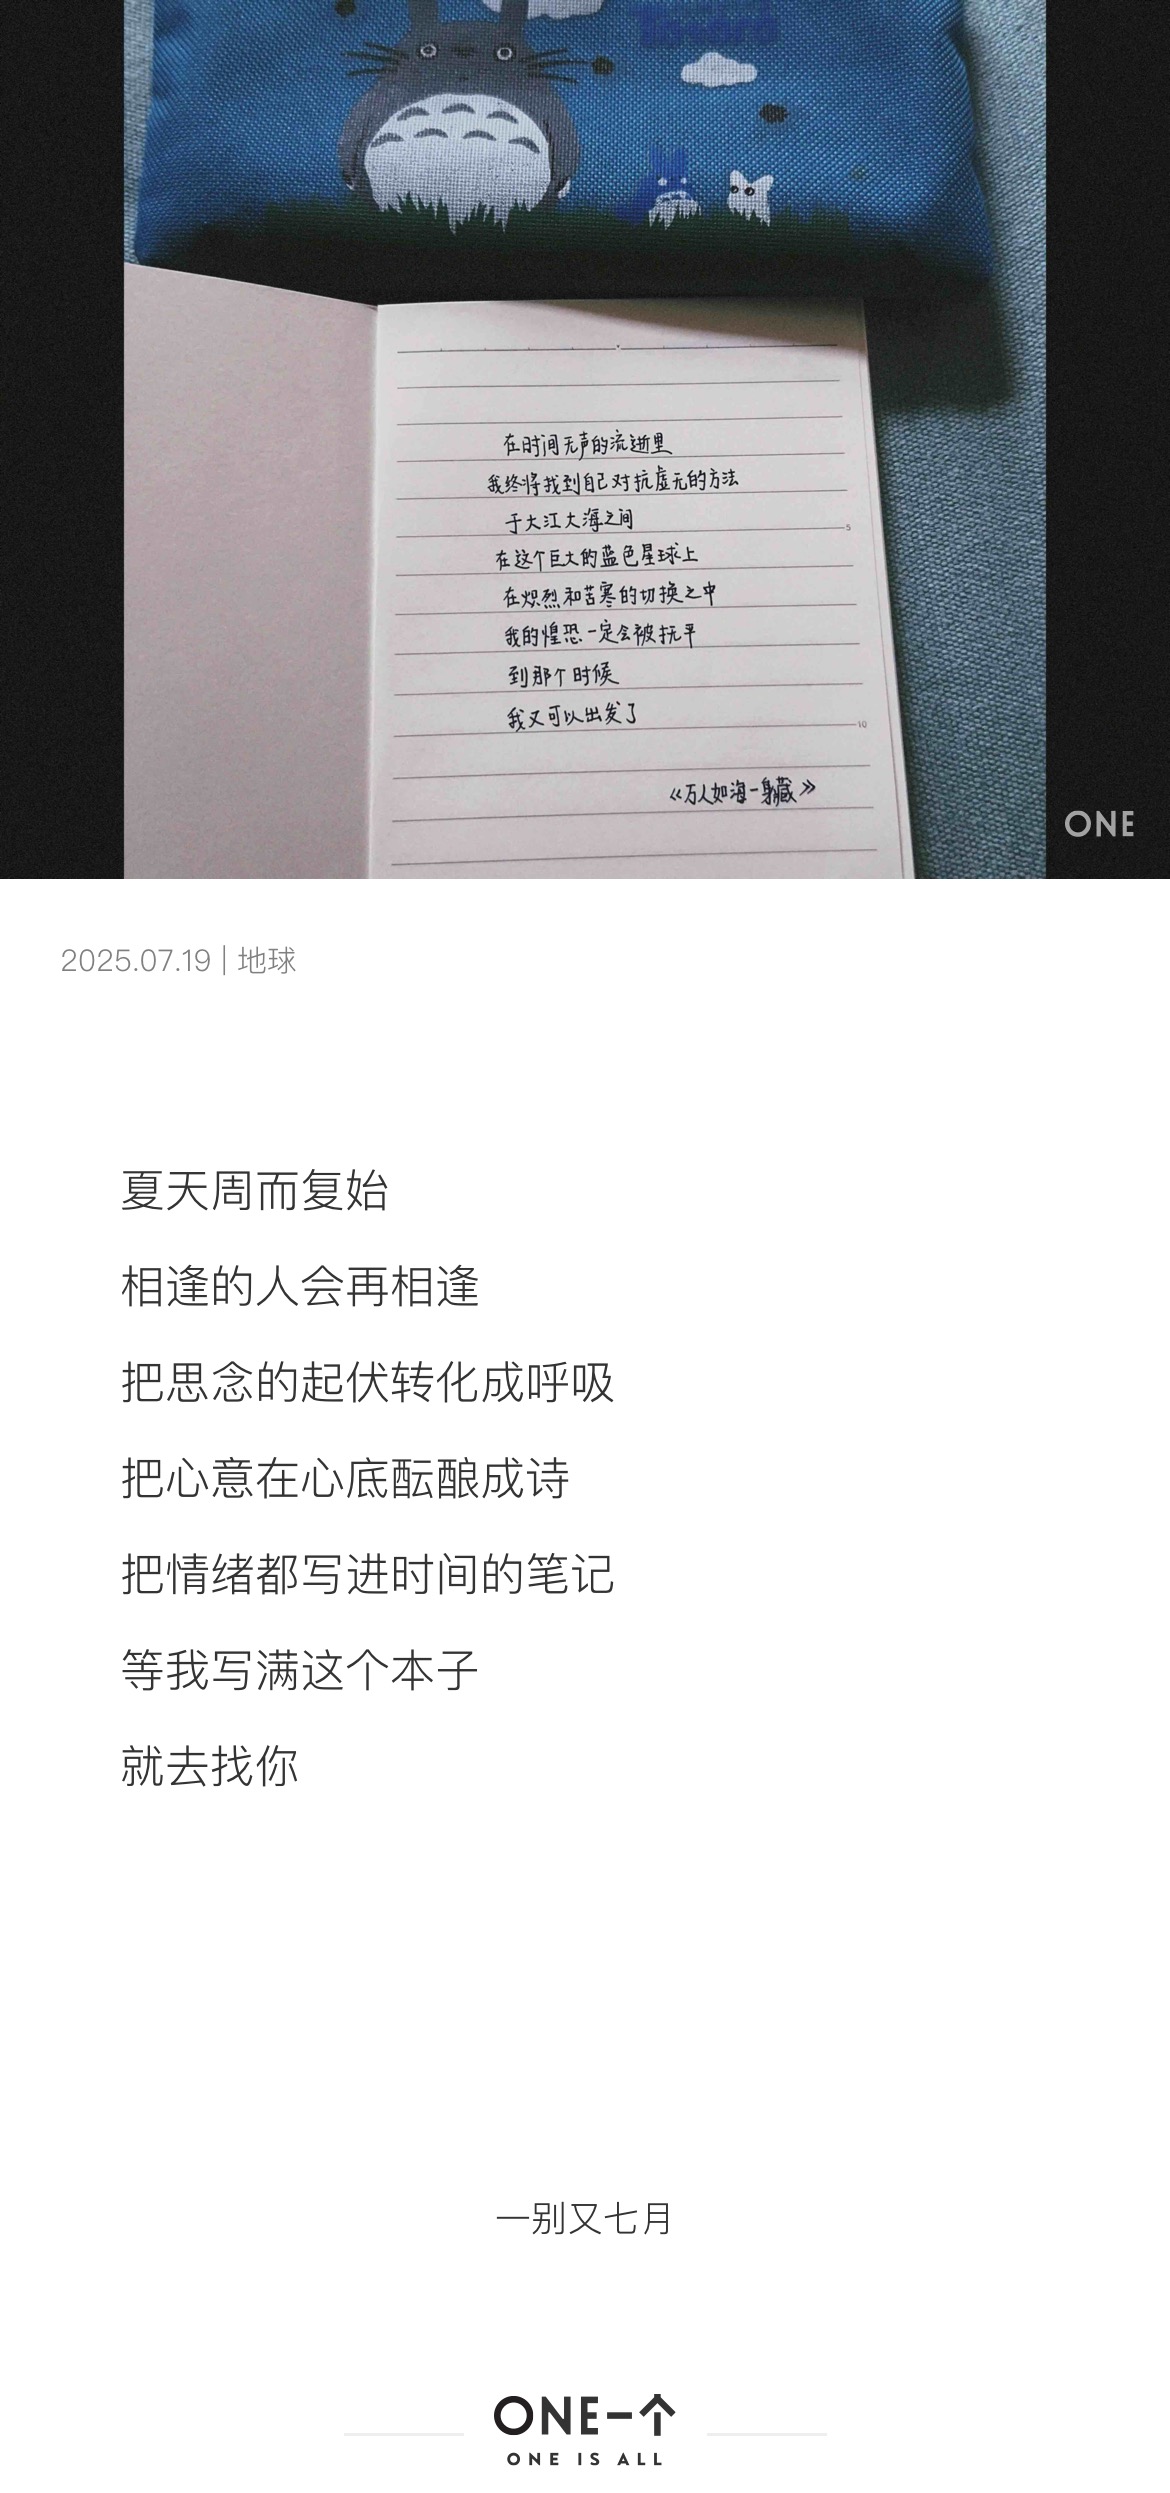 在时间无声的流逝里
我终将找到自己对抗虚无的方法
于大江大海之间
在这个巨大的蓝色星球上
在炽烈和苦寒的切换之中
我的惶恐一定会被抚平
到那个时候
我又可以出发了
《万人如海一身藏》
5
10
ONE
2025.07.19 | 地球
夏天周而复始
相逢的人会再相逢
把思念的起伏转化成呼吸
把心意在心底酝酿成诗
把情绪都写进时间的笔记
等我写满这个本子
就去找你
一别又七月
ONE一个
ONE IS ALL